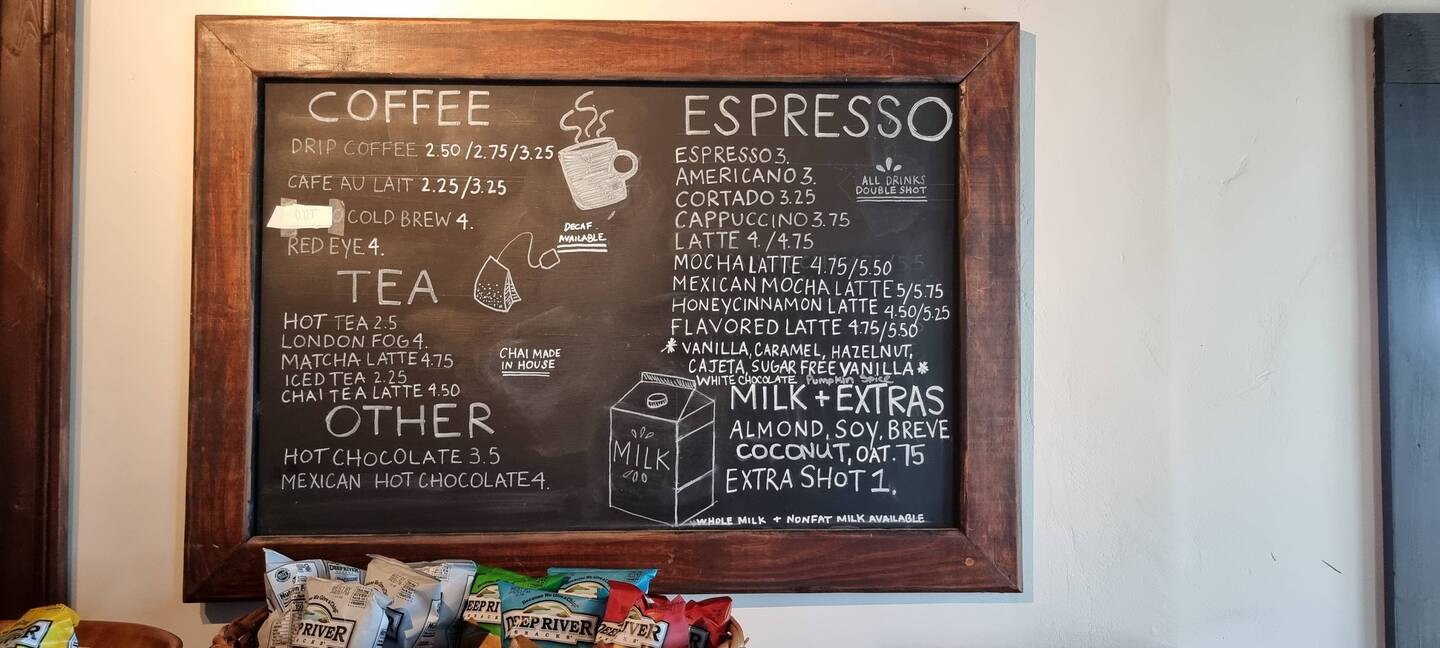 COFFEE
DRIP COFFEE 2.50/2.75/3.25
CAFE AU LAIT 2.25/3.25
OUT COLD BREW 4.
RED EYE 4.
DECAF
AVAILABLE
TEA
HOT TEA 2.5
LONDON FOG 4.
MATCHA LATTE 4.75
ICED TEA 2.25
CHAI TEA LATTE 4.50
CHAI MADE
IN HOUSE
OTHER
HOT CHOCOLATE 3.5
MEXICAN HOT CHOCOLATE 4.
ESPRESSO
ESPRESSO 3.
AMERICANO 3.
CORTADO 3.25
CAPPUCCINO 3.75
LATTE 4./4.75
MOCHA LATTE 4.75/5.50
MEXICAN MOCHA LATTE 5/5.75
HONEYCINNAMON LATTE 4.50/5.25
FLAVORED LATTE 4.75/5.50
*VANILLA, CARAMEL, HAZELNUT,
CAJETA, SUGAR FREE VANILLA*
WHITE CHOCOLATE Pumpkin Spice
ALL DRINKS
DOUBLE SHOT
MILK + EXTRAS
ALMOND, SOY, BREVE
COCONUT, OAT .75
EXTRA SHOT 1.
WHOLE MILK + NONFAT MILK AVAILABLE
MILK
DEEP RIVER
SNACKS
DEEP RIVER
SNACKS